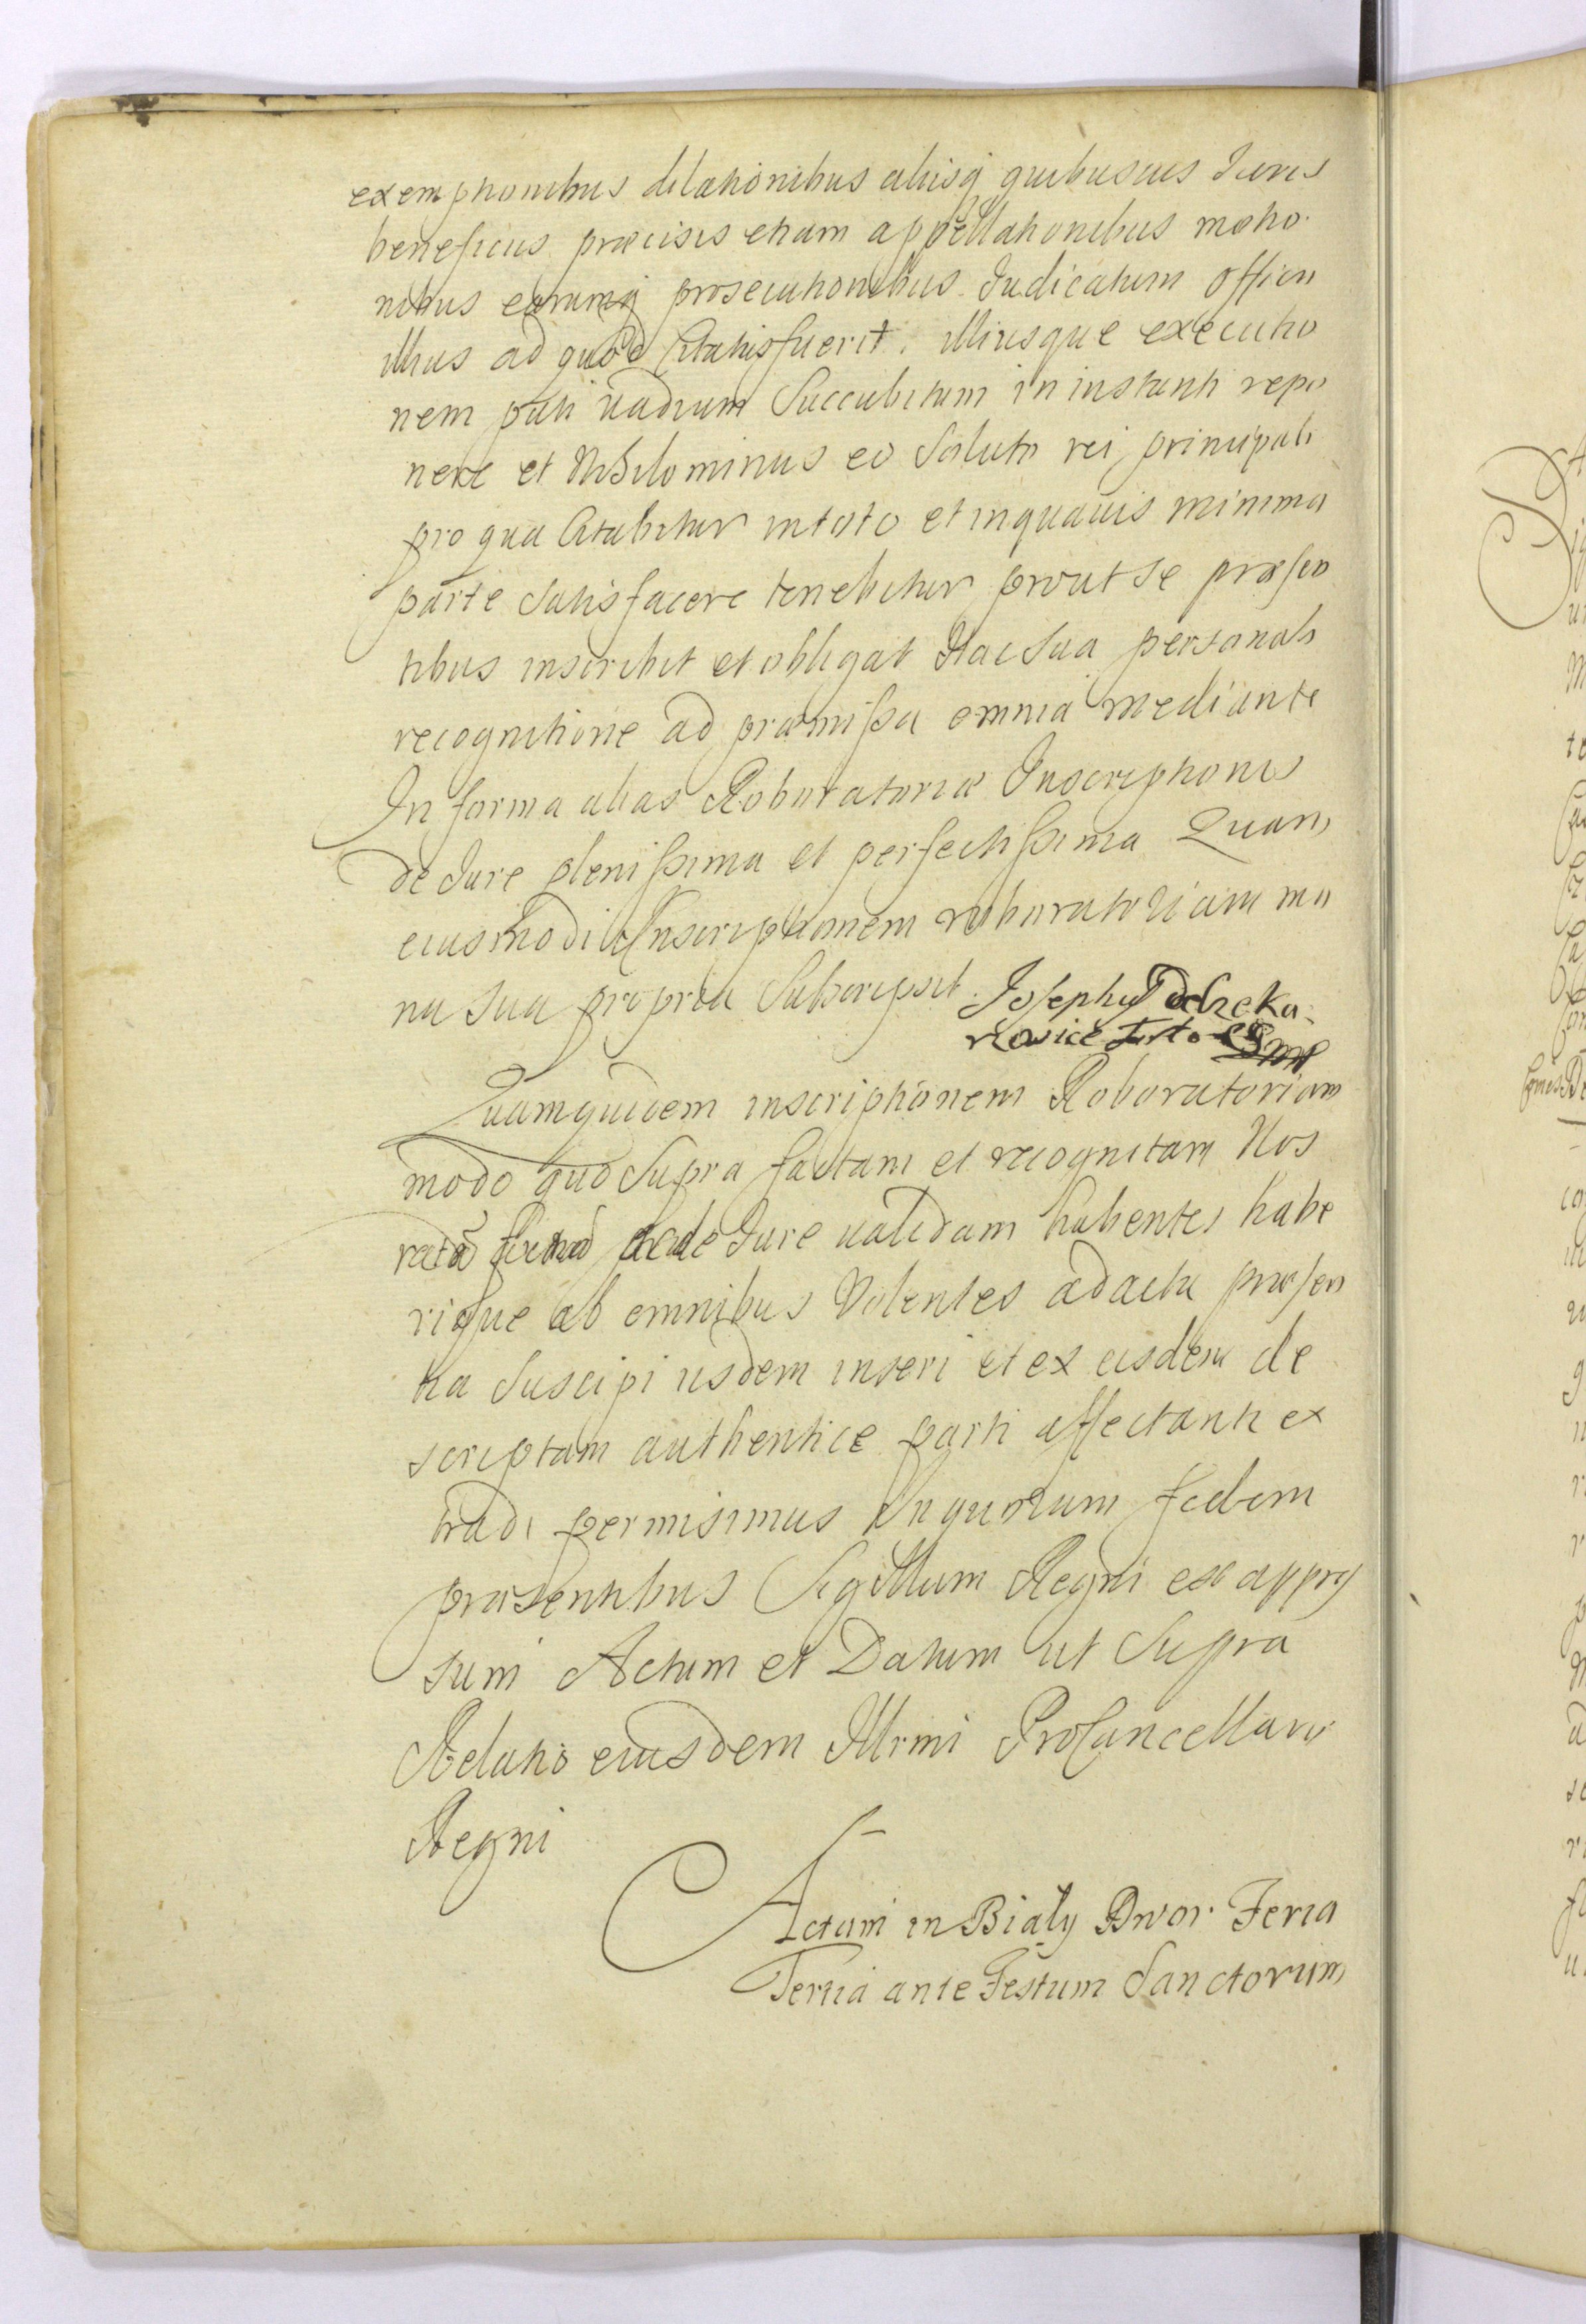 exemptionibus dilationibus aliisq quibusvis Iuris
beneficiis præcisis etiam appellationibus motio
nibus earumq prosecutionibus Iudicatum Officii
illius ad quod Citatus fuerit. illiusque executio
nem pati vadium Succubitum in instanti repo
nere et Nihilominus eo Soluto rei principali
pro qua Citabitur in toto et in quavis minima
parte Satisfacere tenebitur prout se præsen
tibus inscribit et obligat Hac Sua personali
recognitione ad præmissa omnia mediante
In forma alias Roboratoriæ Inscriptionis
de Iure plenissima et perfectissima Quam
eiusmodi Inscriptionem roboratoriam ma
nu sua propria Subscripsit Josephus
Quamquidem inscriptionem Roboratoriam
modo quo Supra factam et recognitam Nos
ratã de Iure validam habentes habe
rique ab omnibus Volentes ad acta præsen
tia Suscipi iisdem inseri et ex eisdem de
scriptam authentice parti affectanti ex
tradi permisimus In quorum fidem
præsentibus Sigillum Regni est appres
sum Actum et Datum ut Supra
Relatio eiusdem Illrmi ProCancellarii
Regni
Actum in Biały Dwor Feria
Tertia ante Festum Sanctorum